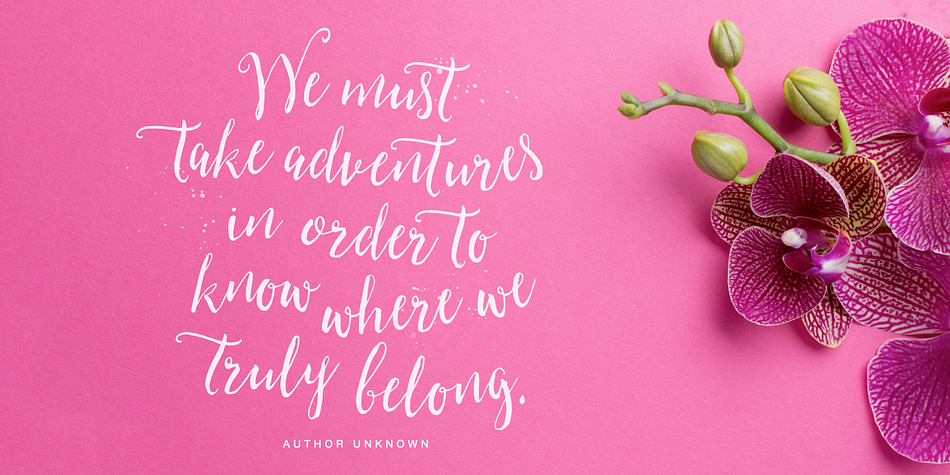 We must
take adventures
in order to
know where we
truly belong.
AUTHOR UNKNOWN